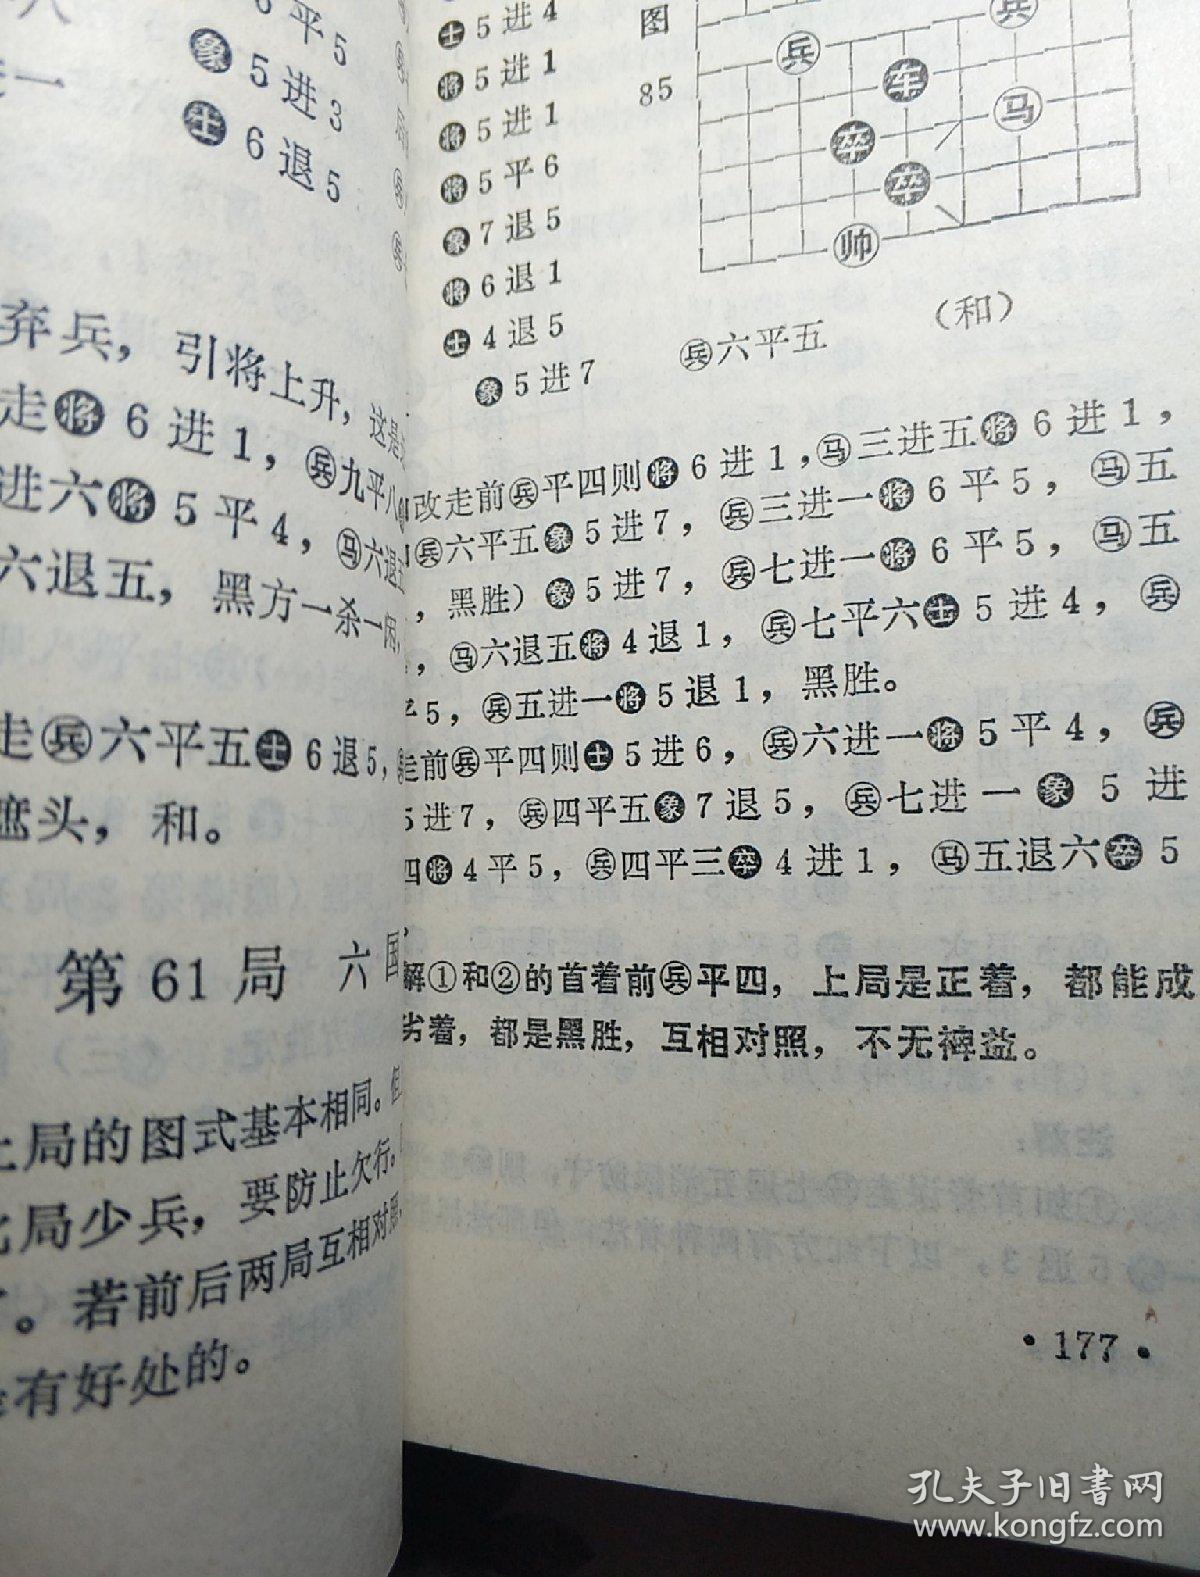 平5
象5进3
士6退5
弃兵，引将上升，这是
走将6进1，兵九平八
进六将5平4，马六退五
六退五，黑方一杀一
走兵六平五士6退5，
遮头，和。
第61局 六国
上局的图式基本相同。但
局少兵，要防止欠行。
。若前后两局互相对照，
有好处的。
士5进4
将5进1
将5进1
将5平6
象7退5
将6退1
士4退5
象5进7
图
85
兵
兵
车
马
卒
卒
帅
（和）
兵六平五
改走前兵平四则将6进1，马三进五将6进1，
兵六平五象5进7，兵三进一将6平5，马五
，黑胜）象5进7，兵七进一将6平5，马五
，马六退五将4退1，兵七平六士5进4，兵
平5，兵五进一将5退1，黑胜。
走前兵平四则士5进6，兵六进一将5平4，兵
5进7，兵四平五象7退5，兵七进一象5进
四将4平5，兵四平三卒4进1，马五退六卒5
解①和②的首着前兵平四，上局是正着，都能成
劣着，都是黑胜，互相对照，不无裨益。
·177·
孔夫子旧书网
www.kongfz.com